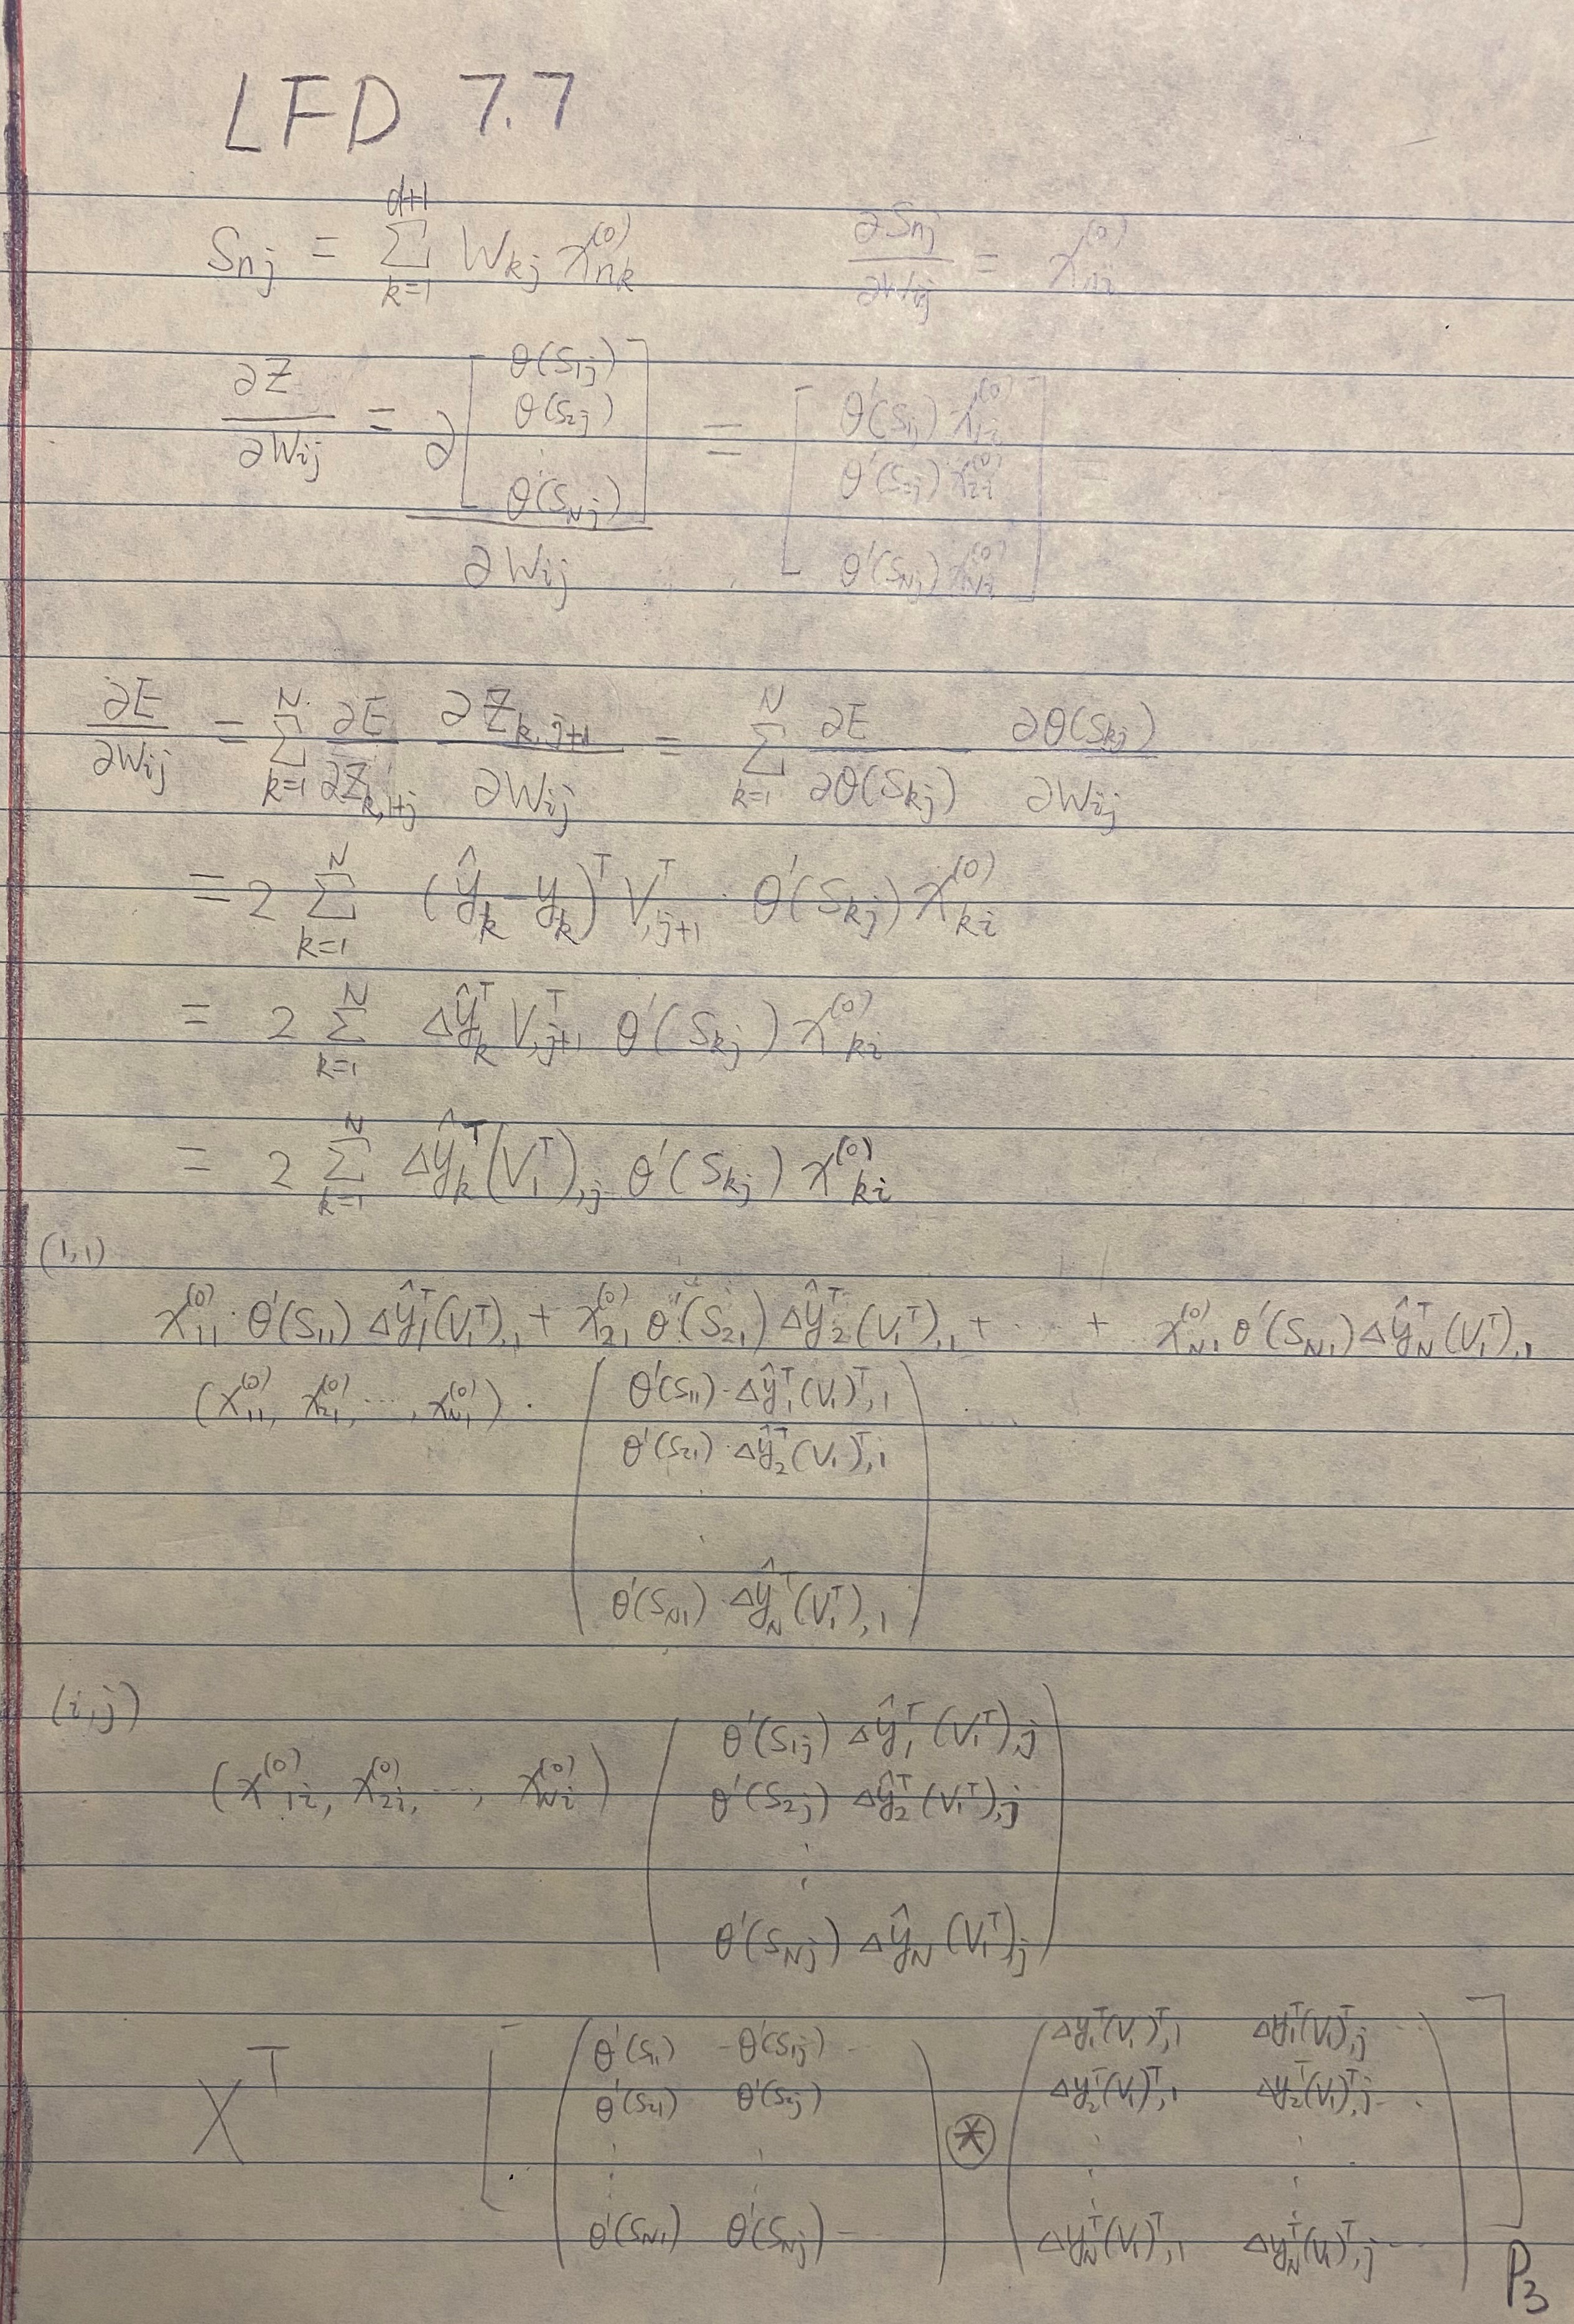 LFD 7.7
S_{nj} = \sum_{k=1}^{d+1} W_{kj} x_{nk}^{(0)}    \frac{∂S_{nj}}{∂W_{ij}} = x_{ni}^{(0)}
\frac{∂Z}{∂W_{ij}} = \frac{∂ [θ(S_{1j}) θ(S_{2j}) ⋮ θ(S_{Nj})]}{∂W_{ij}} = [θ'(S_{1j}) x_{1i}^{(0)} θ'(S_{2j}) x_{2i}^{(0)} θ'(S_{Nj}) x_{Ni}^{(0)}] =
\frac{∂E}{∂W_{ij}} = \sum_{k=1}^{N} \frac{∂E}{∂Z_{k,1+j}} \frac{∂Z_{k,j+1}}{∂W_{ij}} = \sum_{k=1}^{N} \frac{∂E}{∂θ(S_{kj})} \frac{∂θ(S_{kj})}{∂W_{ij}}
= 2 \sum_{k=1}^{N} (\hat{y}_k - y_k)^T V^T_{,j+1} · θ'(S_{kj}) x_{ki}^{(0)}
= 2 \sum_{k=1}^{N} Δ\hat{y}_k^T V^T_{,j+1} θ'(S_{kj}) x_{ki}^{(0)}
= 2 \sum_{k=1}^{N} Δ\hat{y}_k^T (V_1^T)_{,j} θ'(S_{kj}) x_{ki}^{(0)}
(1,1)
x_{11}^{(0)} · θ'(S_{11}) Δ\hat{y}_1^T (V_1^T)_{,1} + x_{21}^{(0)} θ'(S_{21}) Δ\hat{y}_2^T (V_1^T)_{,1} + ··· + x_{N1}^{(0)} θ'(S_{N1}) Δ\hat{y}_N^T (V_1^T)_{,1}
(x_{11}^{(0)}, x_{21}^{(0)}, ..., x_{N1}^{(0)}) · ( θ'(S_{11}) · Δ\hat{y}_1^T (V_1)^T_{,1}
θ'(S_{21}) · Δ\hat{y}_2^T (V_1)^T_{,1}
⋮
θ'(S_{N1}) · Δ\hat{y}_N^T (V_1^T)_{,1} )
(i,j)
(x_{1i}^{(0)}, x_{2i}^{(0)}, ..., x_{Ni}^{(0)}) ( θ'(S_{1j}) Δ\hat{y}_1^T (V_1^T)_{,j}
θ'(S_{2j}) Δ\hat{y}_2^T (V_1^T)_{,j}
⋮
θ'(S_{Nj}) Δ\hat{y}_N (V_1^T)_{,j} )
X^T [ ( θ'(S_{11}) ··θ'(S_{1j}) ··
θ'(S_{21}) θ'(S_{2j})
⋮ ⋮
θ'(S_{N1}) θ'(S_{Nj}) ·· ) ⊛ ( Δy_1^T (V_1)^T_{,1} Δy_1^T (V_1)^T_{,j} ··
Δy_2^T (V_1)^T_{,1} Δy_2^T (V_1)^T_{,j} ··
⋮ ⋮
Δy_N^T (V_1)^T_{,1} Δy_N^T (V_1)^T_{,j} ·· ) ]
P3